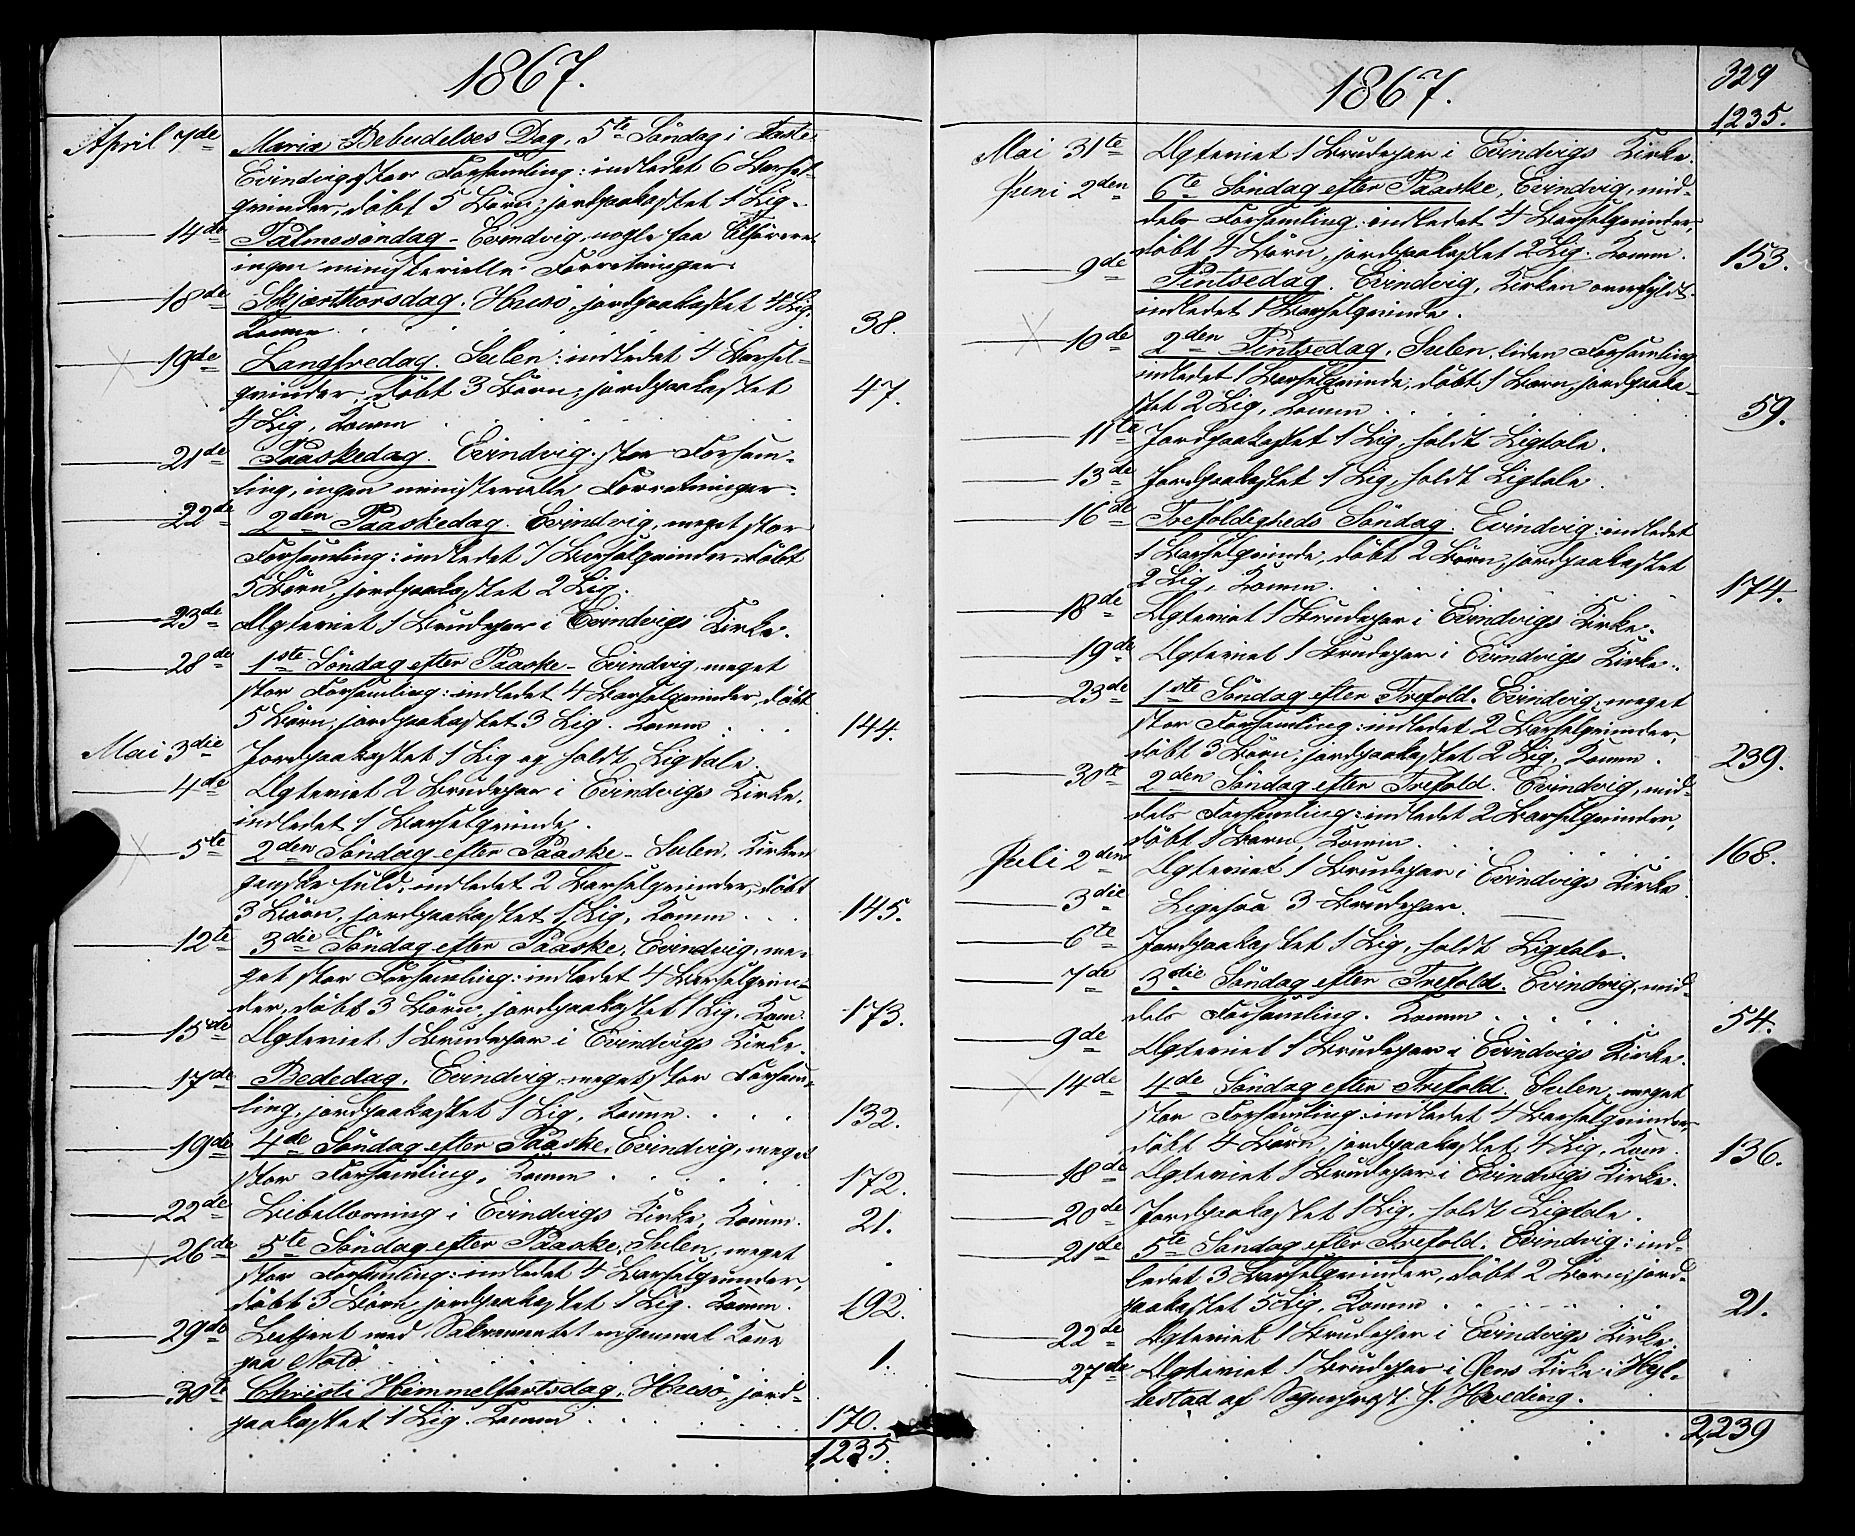 1867.
April 7de Mariæ Bebudelses Dag, 5te Søndag i Faste.
Evindvig, stor Forsamling: indledet 6 Barsel-
qvinder, döbt 5 Börn, jordpaakastet 1 Lig.
14de Palmesöndag - Evindvig, nogle faa Tilhörere
ingen ministerielle Forretninger.
18de Skjærthorsdag. Husö, jordpaakastet 4 Lig,
Komm. 38.
19de Langfredag. Sulen: indledet 4 Barsel-
qvinder, döbt 3 Börn, jordpaakastet 47.
4 Lig, Komm
21de Paaskedag. Evindvig. stor Forsam-
ling, ingen ministerielle Forretninger.
22de 2den Paaskedag. Evindvig, meget stor
Forsamling: indledet 7 Barselqvinder, döbt
5 Börn, jordpaakastet 2 Lig.
23de Ægteviet 1 Brudepar i Evindvigs Kirke.
28de 1ste Söndag efter Paaske - Evindvig, meget
stor Forsamling: indledet 4 Barselqvinder, döbt
5 Börn, jordpaakastet 3 Lig. Komm 144.
Mai 3die Jordpaakastet 1 Lig og holdt Ligtale.
4de Ægteviet 2 Brudepar i Evindvigs Kirke.
indledet 1 Barselqvinde.
5te 2den Söndag efter Paaske - Sulen. Kirken
ganske fuld, indledet 2 Barselqvinder, döbt
3 Börn, jordpaakastet 1 Lig, Komm 145.
12te 3die Söndag efter Paaske. Evindvig, me-
get stor Forsamling: indledet 4 Barselqvin-
der, döbt 3 Börn, jordpaakastet 1 Lig, Kom. 173.
15de Ægteviet 1 Brudepar i Evindvigs Kirke.
17de Bededag. Evindvig meget stor Forsam-
ling, jordpaakastet 1 Lig, Komm. 132.
19de 4de Söndag efter Paaske. Evindvig, meget
stor Forsamling, Komm 172.
22de Bibellæsning i Evindvigs Kirke, Komm. 21.
26de 5te Söndag efter Paaske. Sulen, meget
stor Forsamling: indledet 4 Barselqvinder,
döbt 3 Börn, jordpaakastet 1 Lig. Komm. 192.
29de Betjent med Sakramentet en gammel Kone
paa Notö 1.
30te Christi Himmelfartsdag. Husö, jord-
paakastet 1 Lig. Komm 170.
1235.
1867.
329
1235.
Mai 31te Ægteviet 1 Brudepar i Evindvigs Kirke.
Juni 2den 6te Söndag efter Paaske, Evindvig, mid-
dels Forsamling: indledet 4 Barselqvinder,
döbt 4 Börn, jordpaakastet 2 Lig. Komm. 153.
9de Pintsedag. Evindvig, Kirken overfyldt
indledet 1 Barselqvinde.
10de 2den Pintsedag, Sulen, liden Forsamling
indledet 1 Barselqvinde, döbt 1 Barn, jordpaaka-
stet 2 Lig, Komm 59.
11te Jordpaakastet 1 Lig, holdt Ligtale.
13de Jordpaakastet 1 Lig, holdt Ligtale.
16de Trefoldigheds Söndag. Evindvig: indledet
1 Barselqvinde, döbt 2 Börn, jordpaakastet
2 Lig, Komm 174.
18de Ægteviet 1 Brudepar i Evindvigs Kirke.
19de Ægteviet 1 Brudepar i Evindvigs Kirke.
23de 1ste Söndag efter Trefold. Evindvig, meget
stor Forsamling: indledet 2 Barselqvinder,
döbt 3 Börn, jordpaakastet 2 Lig, Komm. 239.
30te 2den Söndag efter Trefold. Evindvig, mid-
dels Forsamling: indledet 2 Barselqvinder,
döbt 1 Barn, Komm. 168.
Juli 2den Ægteviet 1 Brudepar i Evindvigs Kirke.
3die Ligesaa 3 Brudepar.
6te Jordpaakastet 1 Lig, holdt Ligtale.
7de 3die Söndag efter Trefold. Evindvig, mid-
dels Forsamling. Komm 54.
9de Ægteviet 1 Brudepar i Evindvigs Kirke.
14de 4de Söndag efter Trefold. Sulen, meget
stor Forsamling: indledet 4 Barselqvinder,
döbt 4 Börn, jordpaakastet 4 Lig, Kom. 136.
18de Ægteviet 1 Brudepar i Evindvigs Kirke.
20de Jordpaakastet 1 Lig, holdt Ligtale.
21de 5te Söndag efter Trefold. Evindvig: ind-
ledet 3 Barselqvinder, döbt 2 Börn, jord-
paakastet 5 Lig, Komm 21.
22de Ægteviet 1 Brudepar i Evindvigs Kirke.
27de Ægteviet 1 Brudepar i Øens Kirke i Hyl-
lestad af Sognepræst J. Hæreding.
2,239